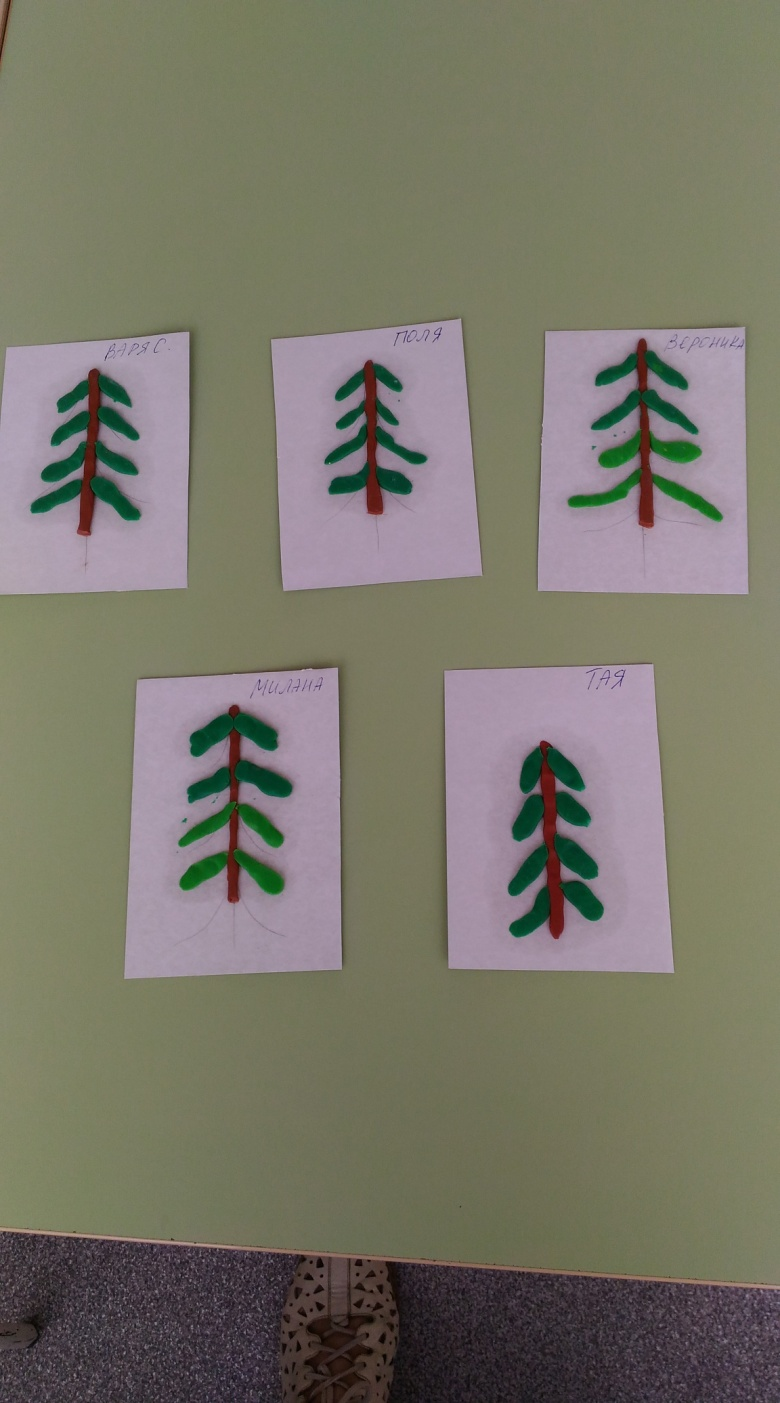 ВАРЯ С.
ПОЛЯ
ВЕРОНИКА
МИЛАНА
ТАЯ